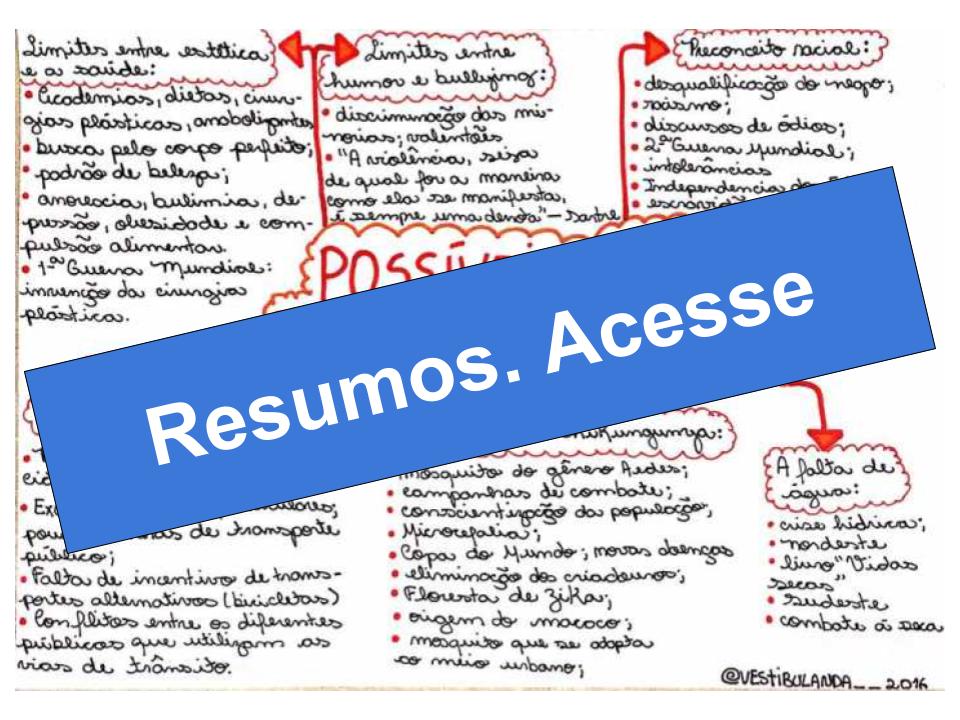 Limites entre estética
e a saúde:
• Academias, dietas, cirur-
gias plásticas, anabolizantes
• busca pelo corpo perfeito;
• padrão de beleza;
• anorexia, bulimia, de-
pressão, obesidade e com-
pulsão alimentar.
• 1ª Guerra Mundial:
invenção da cirurgia
plástica.
Limites entre
humor e bullying:
• discriminação das mi-
norias; valentões
• "A violência, seja
de qual for a maneira
como ela se manifesta,
é sempre uma derrota" – Sartre
Preconceito racial:
• desqualificação do negro;
• racismo;
• discursos de ódios;
• 2ª Guerra Mundial;
• intolerâncias
• Independencia
Resumos. Acesse
transporte
público;
• Falta de incentivo de trans-
portes alternativos (bicicletas)
• Conflitos entre os diferentes
públicos que utilizam as
vias de trânsito.
chikungunya:
mosquito do gênero Aedes;
• campanhas de combate;
• conscientização da população;
• Microcefalia;
• Copa do Mundo; novas doenças
• eliminação dos criadouros;
• Floresta de Zika;
• origem do macaco;
• mosquito que se adapta
ao meio urbano;
A falta de
água:
• crise hídrica;
• nordeste
• livro "Vidas
secas"
• sudeste
• combate á seca
@VESTIBULANDA__2016